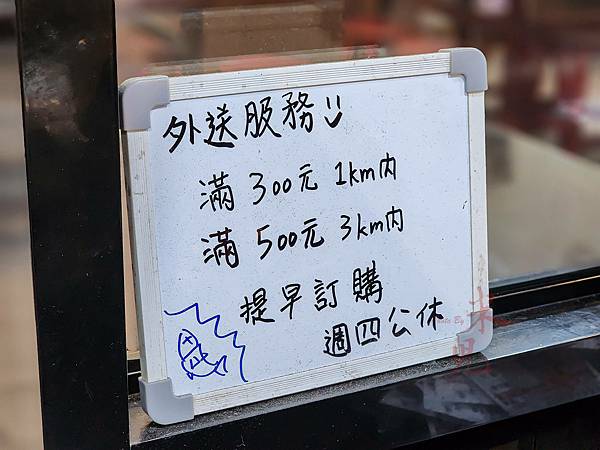 外送服務
滿 300元 1km內
滿 500元 3km內
提早訂購
週四公休